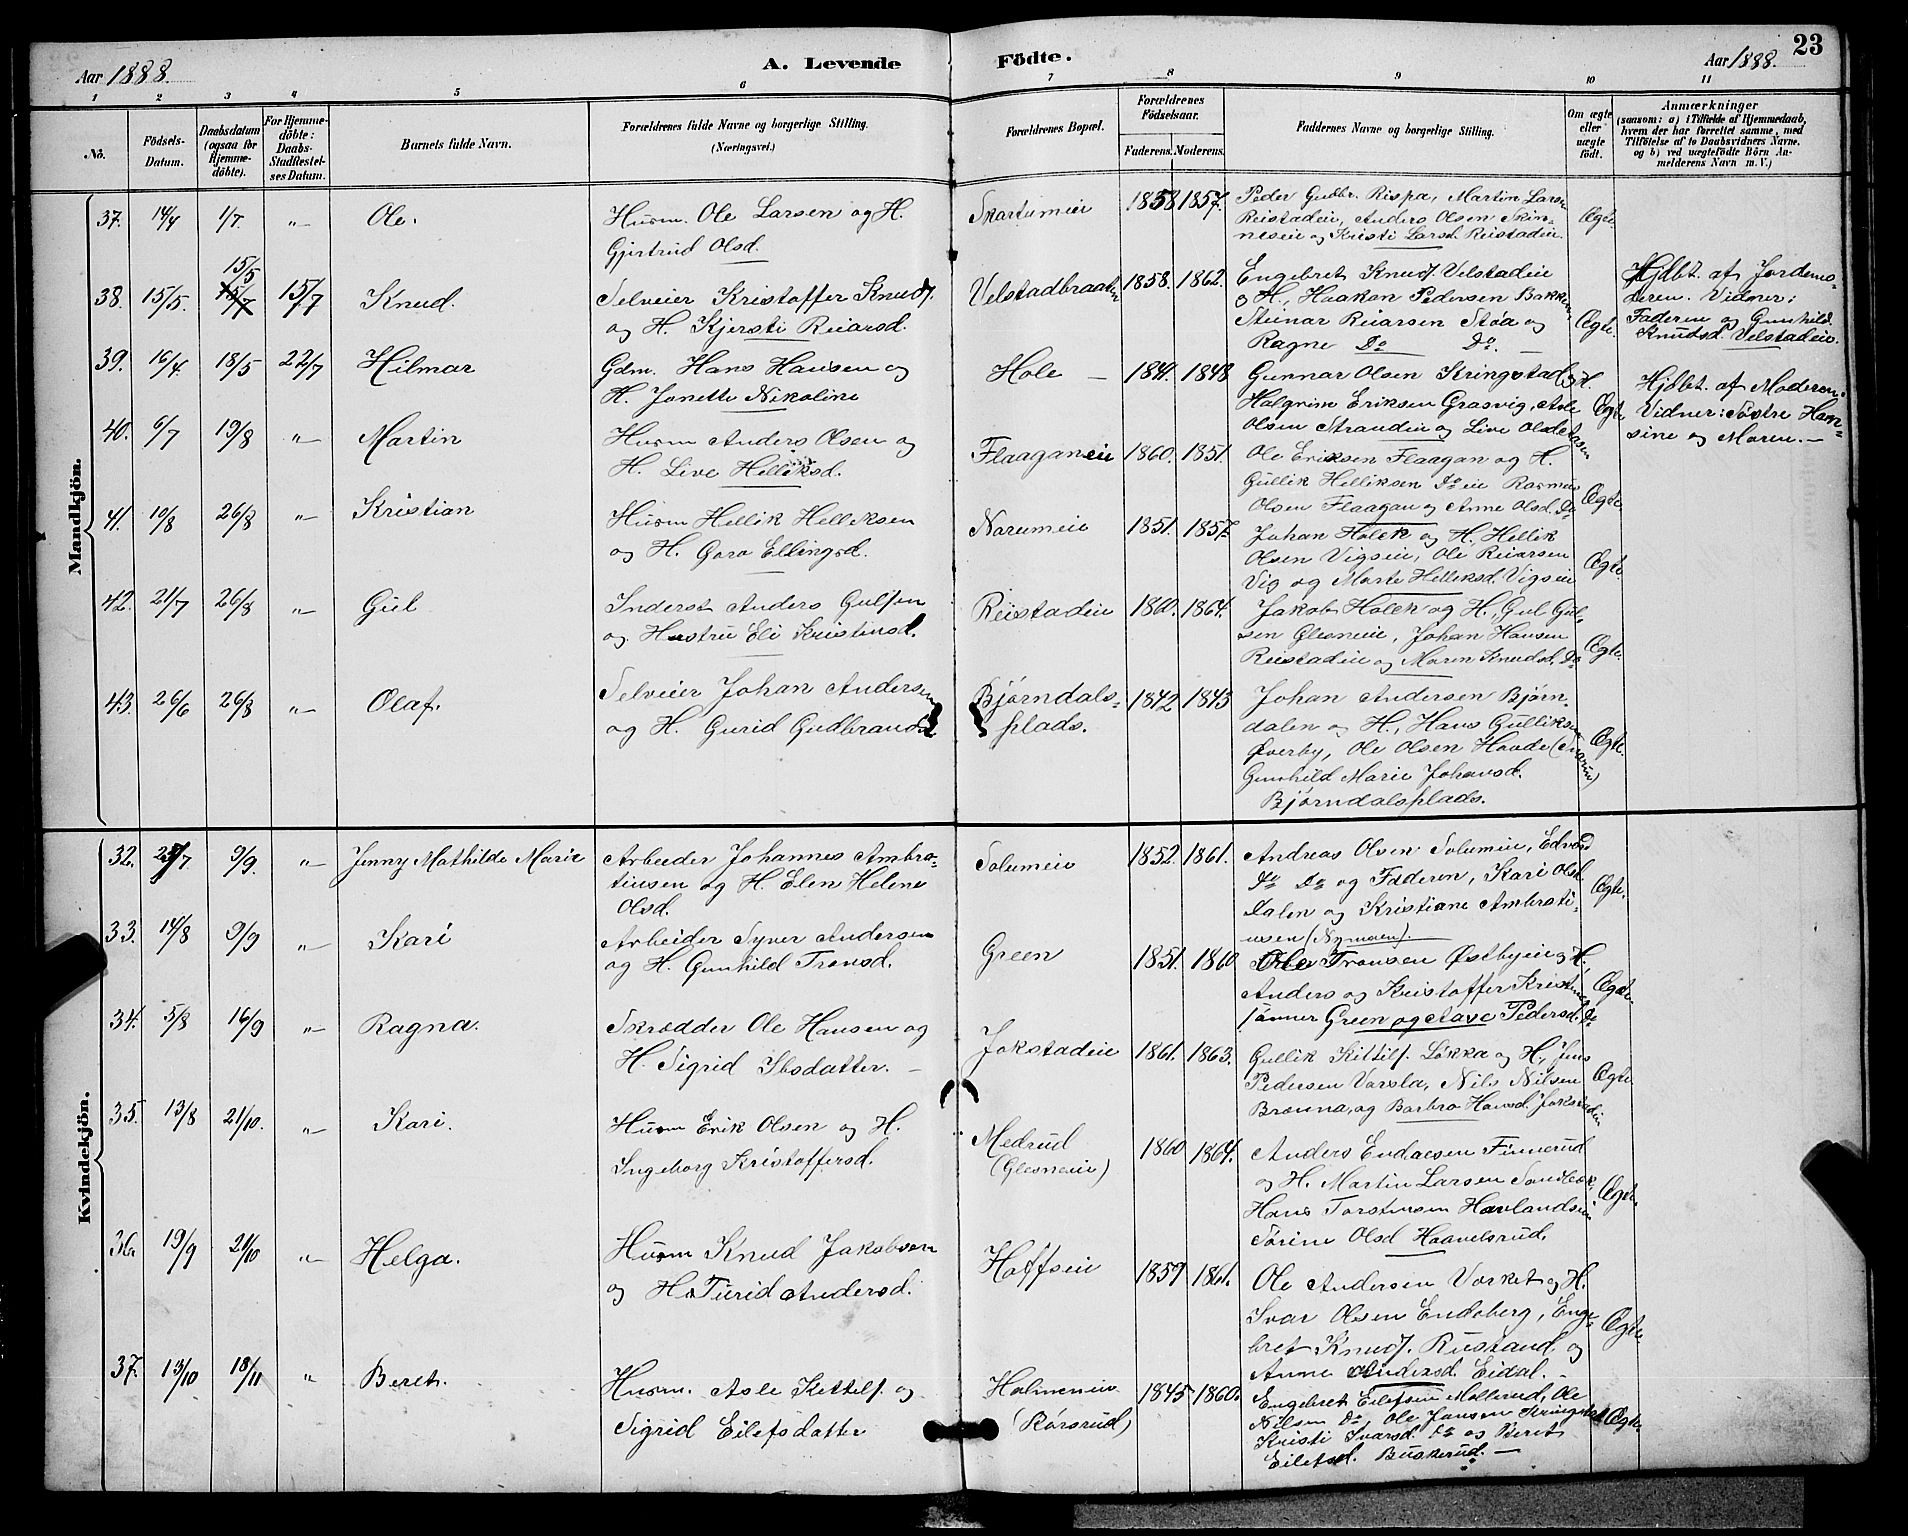 Aar 1888. A. Levende Födte. Aar 1888. 23
1 2 3 4 5 6 7 8 9 10 11
No.
Födsels-Datum.
Daabsdatum (ogsaa for Hjemme-döbte).
For Hjemme-döbte: Daabs-Stadfæstel-ses Datum.
Barnets fulde Navn.
Forældrenes fulde Navne og borgerlige Stilling.
(Næringsvei.)
Forældrenes Bopæl.
Forældrenes Födselsaar.
Faderens. Moderens.
Faddernes Navne og borgerlige Stilling.
Om ægte eller uægte födt.
Anmærkninger
(saasom: a) i Tilfælde af Hjemmedaab,
hvem der har forrettet samme, med
Tilföielse af to Daabsvidners Navne.
og b) ved uægtefödte Börn An-
melderens Navn m. V.)
Mandkjön.
37. 14/4 1/7. „ Ole. Husm. Ole Larsen og H.
Gjertrud Olsd.
Skartumeie 1858 1857. Peder Gudbr. Rispa, Martin Larsen
Reistadeie, Anders Olsen Skin-
neseie og Kristi Larsd. Reistadeie. Ægte.
38. 15/5. 15/5 15/7 15/7 Knud. Selveier Kristoffer Knuds.
og H. Kjersti Reiarsd.
Velstadbraaten 1858. 1862. Engebret Knuds. Velstadeie
og H., Haakon Pedersen Bakken,
Steinar Reiarsen Støa og
Ragne Do Do. Ægte.
Hjdbt. af Jordemo-
deren. Vidner:
Faderen og Gunhild
Knudsd. Velstadeie.
39. 16/4. 18/5 22/7 Hilmar Gdm. Hans Hansen og
H. Janette Nikoline
Hole 1841. 1848 Gunnar Olsen Kringstad og H.
Halgrim Eriksen Grasvig, Asle
Olsen Strandeie og Live Olsd. Ægte
Hjdbt. af Moderen.
Vidner: Søstre Han-
sine og Maren.
40. 6/7 19/8 „ Martin Husm Anders Olsen og
H. Live Helliksd.
Flaaganeie 1860. 1851. Ole Eriksen Flaagan og H.
Gullik Helliksen Do eie Rasmus
Olsen Flaagan og Anne Olsd. Do Ægte.
41. 10/8 26/8 „ Kristian Husm Hellik Helliksen
og H. Goro Ellingsd.
Narumeie 1851. 1857. Johan Holck og H. Hellik
Olsen Vigseie, Ole Reiarsen
Vig og Marte Helliksd. Vigseie Ægte.
42. 21/7 26/8 „ Gul Inderst Anders Gulsen
og Hustru Eli Kristinsd.
Reistadeie 1860. 1864. Jakob Holck og H., Gul Gul-
sen Glesneeie, Johan Hansen
Reistadeie og Maren Knudsd. Do Ægte.
43. 26/6 26/8 „ Olaf. Selveier Johan Andersen
og H. Gurid Gudbrandsd.
Bjørndals-
plads. 1842 1843 Johan Andersen Bjørn-
dalen og H., Hans Gulliksen
Øverby, Ole Olsen Hovde (Narum)
Gunhild Marie Johansd.
Bjørndalsplads. Ægte.
Kvindekjön.
32. 9/9. „ Jenny Mathilde Marie Arbeider Johannes Ambro-
tiusen og H. Elen Helene
Olsd.
Solumeie 1852. 1861. Andreas Olsen Solumeie, Edvard
Do Do og Faderen, Kari Olsd.
Dalen og Kristiane Ambroti-
usen (Nymoen). Ægte.
33. 14/8 9/9 „ Kari Arbeider Syver Andersen
og H. Gunhild Tronsd.
Green 1851. 1860 Ole Tronsen Østbyeie og H,
Anders og Kristoffer Kristens-
sønner Green og Aase Pedersd. Do Ægte.
34. 5/8 16/9 „ Ragna. Skrædder Ole Hansen og
H. Sigrid Ibsdatter.
Jokstadeie 1861. 1863. Gullik Kittils. Løkka og H., Jens
Pedersen Varsla, Nils Nilsen
Brænna, og Barbro Hansd. Jokstadeie Ægte.
35. 13/8 21/10. „ Kari. Husm Erik Olsen og H.
Ingeborg Kristoffersd.
Medrud
(Glesneeie) 1860 1864. Anders Endresen Finnerud
og H. Martin Larsen Sandbæk,
Hans Torstensen Havlandseie
Sørine Olsd Haavelsrud. Ægte.
36. 19/9 21/10 „ Helga. Husm Knud Jakobsen
og H. Turid Andersd.
Hoffseie 1859 1861. Ole Andersen Værket og H.
Ivar Olsen Endeberg, Enge-
bret Knuds. Rustand og
Anne Andersd. Eidal. Ægte
37. 13/10 18/11 „ Beret. Husm. Asle Kettils. og
Sigrid Eilefsdatter
Holmeneie
(Rørsrud) 1845 1860. Engebret Eilefsen Møllerud, Ole
Nilsen Do, Ole Jansen Kringstad
Kristi Ivarsd. Do og Beret
Eilefsd. Buskerud. Ægte.